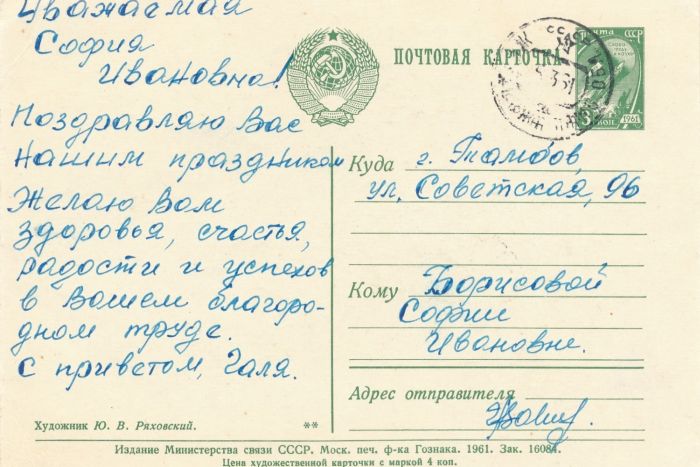 Уважаемая
София
Ивановна!
Поздравляю Вас
нашим праздником
Желаю Вам
здоровья, счастья,
радости и успехов
в Вашем благоро-
дном труде.
с приветом, Галя.
Художник Ю. В. Ряховский.
**
ПОЧТОВАЯ КАРТОЧКА
почта СССР
КОП.
1961
Куда г. Тамбов,
ул. Советская, 96
Кому Борисовой
Софии
Ивановне.
Адрес отправителя
Издание Министерства связи СССР. Моск. печ. ф-ка Гознака. 1961. Зак. 16084.
Цена художественной карточки с маркой 4 коп.